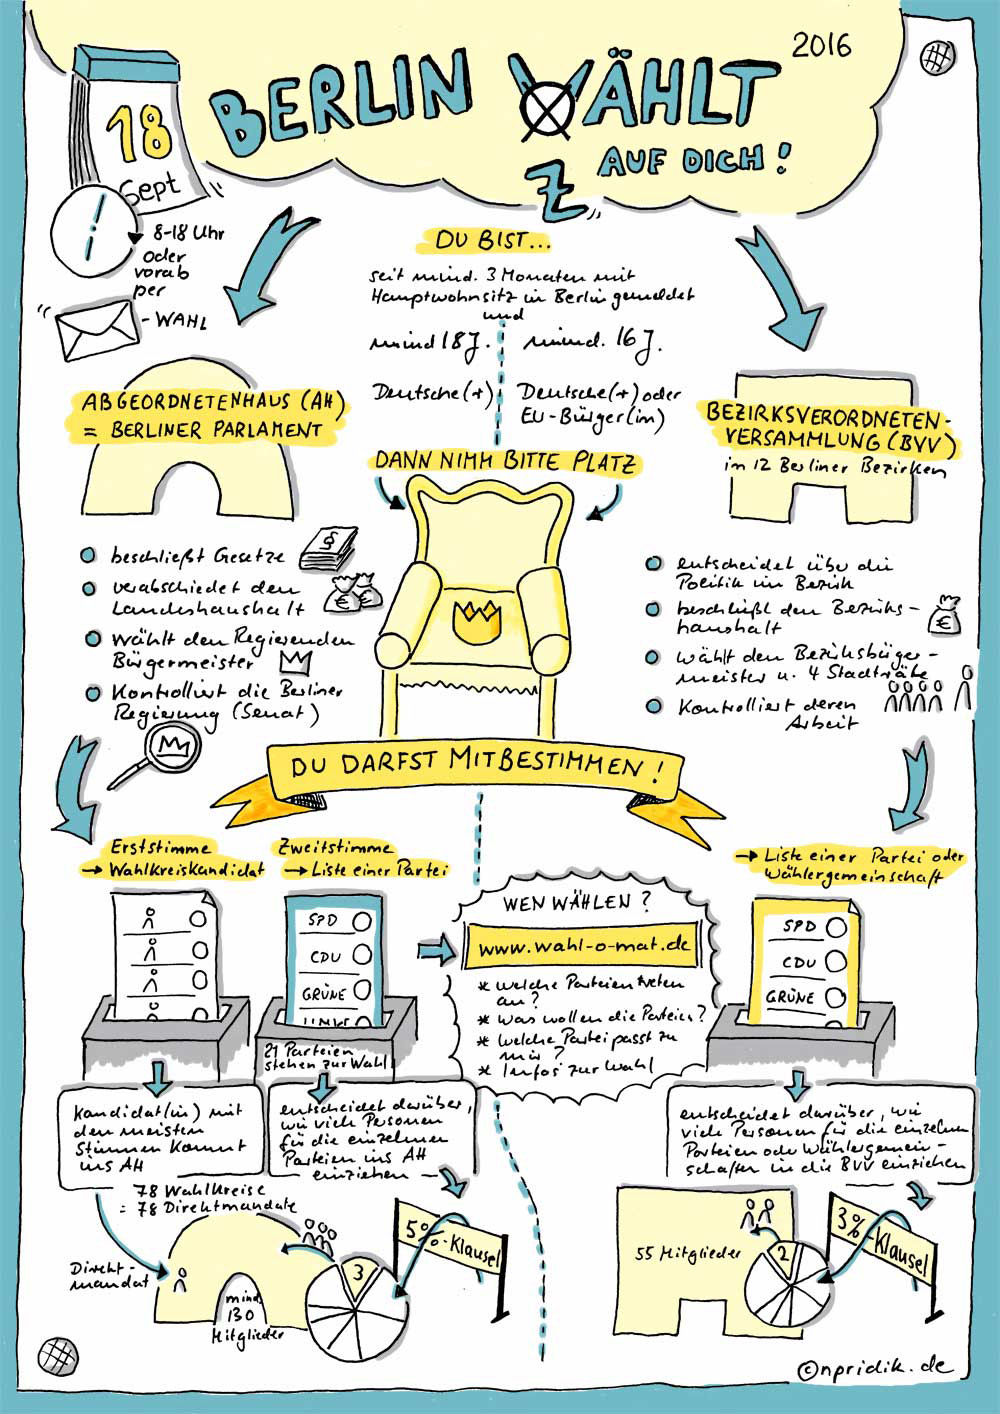 2016
BERLIN WÄHLT
Z AUF DICH!
18
Sept
8-18 Uhr
oder
vorab
per
-WAHL
DU BIST...
seit mind. 3 Monaten mit
Hauptwohnsitz in Berlin gemeldet
und
mind 18 J.
Deutsche(r)
mind. 16 J.
Deutsche(r) oder
EU-Bürger(in)
DANN NIMM BITTE PLATZ
ABGEORDNETENHAUS (AH)
= BERLINER PARLAMENT
§
beschließt Gesetze
€ €
verabschiedet den
Landeshaushalt
wählt den Regierenden
Bürgermeister
Kontrolliert die Berliner
Regierung (Senat)
BEZIRKSVERORDNETEN-
VERSAMMLUNG (BVV)
in 12 Berliner Bezirken
entscheidet über die
Politik im Bezirk
beschließt den Bezirks-
haushalt
€
wählt den Bezirksbürger-
meister u. 4 Stadträte
Kontrolliert deren
Arbeit
DU DARFST MITBESTIMMEN!
Erststimme
→ Wahlkreiskandidat
Zweitstimme
→ Liste einer Partei
SPD
CDU
GRÜNE
LINKE
21 Parteien
stehen zur Wahl
WEN WÄHLEN?
www.wahl-o-mat.de
* welche Parteien treten
an?
* Was wollen die Parteien?
* welche Partei passt zu
mir?
* Infos zur Wahl
→ Liste einer Partei oder
Wählergemeinschaft
SPD
CDU
GRÜNE
Kandidat(in) mit
den meisten
Stimmen kommt
ins AH
78 Wahlkreise
= 78 Direktmandate
entscheidet darüber,
wie viele Personen
für die einzelnen
Parteien ins AH
einziehen
Direkt-
mandat
mind.
130
Mitglieder
3
5%-Klausel
entscheidet darüber, wie
viele Personen für die einzelnen
Parteien oder Wählergemein-
schaften in die BVV einziehen
55 Mitglieder
2
3%-Klausel
©npridik.de